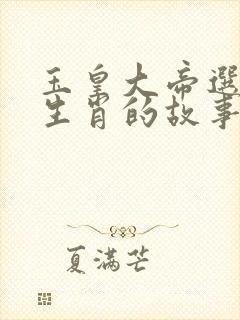 玉皇大帝選
生肖的故事
夏滿芒